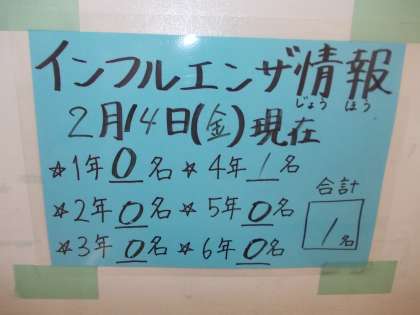 インフルエンザ情報
じょう ほう
2月14日(金)現在
☆1年0名 ☆4年1名
☆2年0名 ☆5年0名
☆3年0名 ☆6年0名
合計
1名